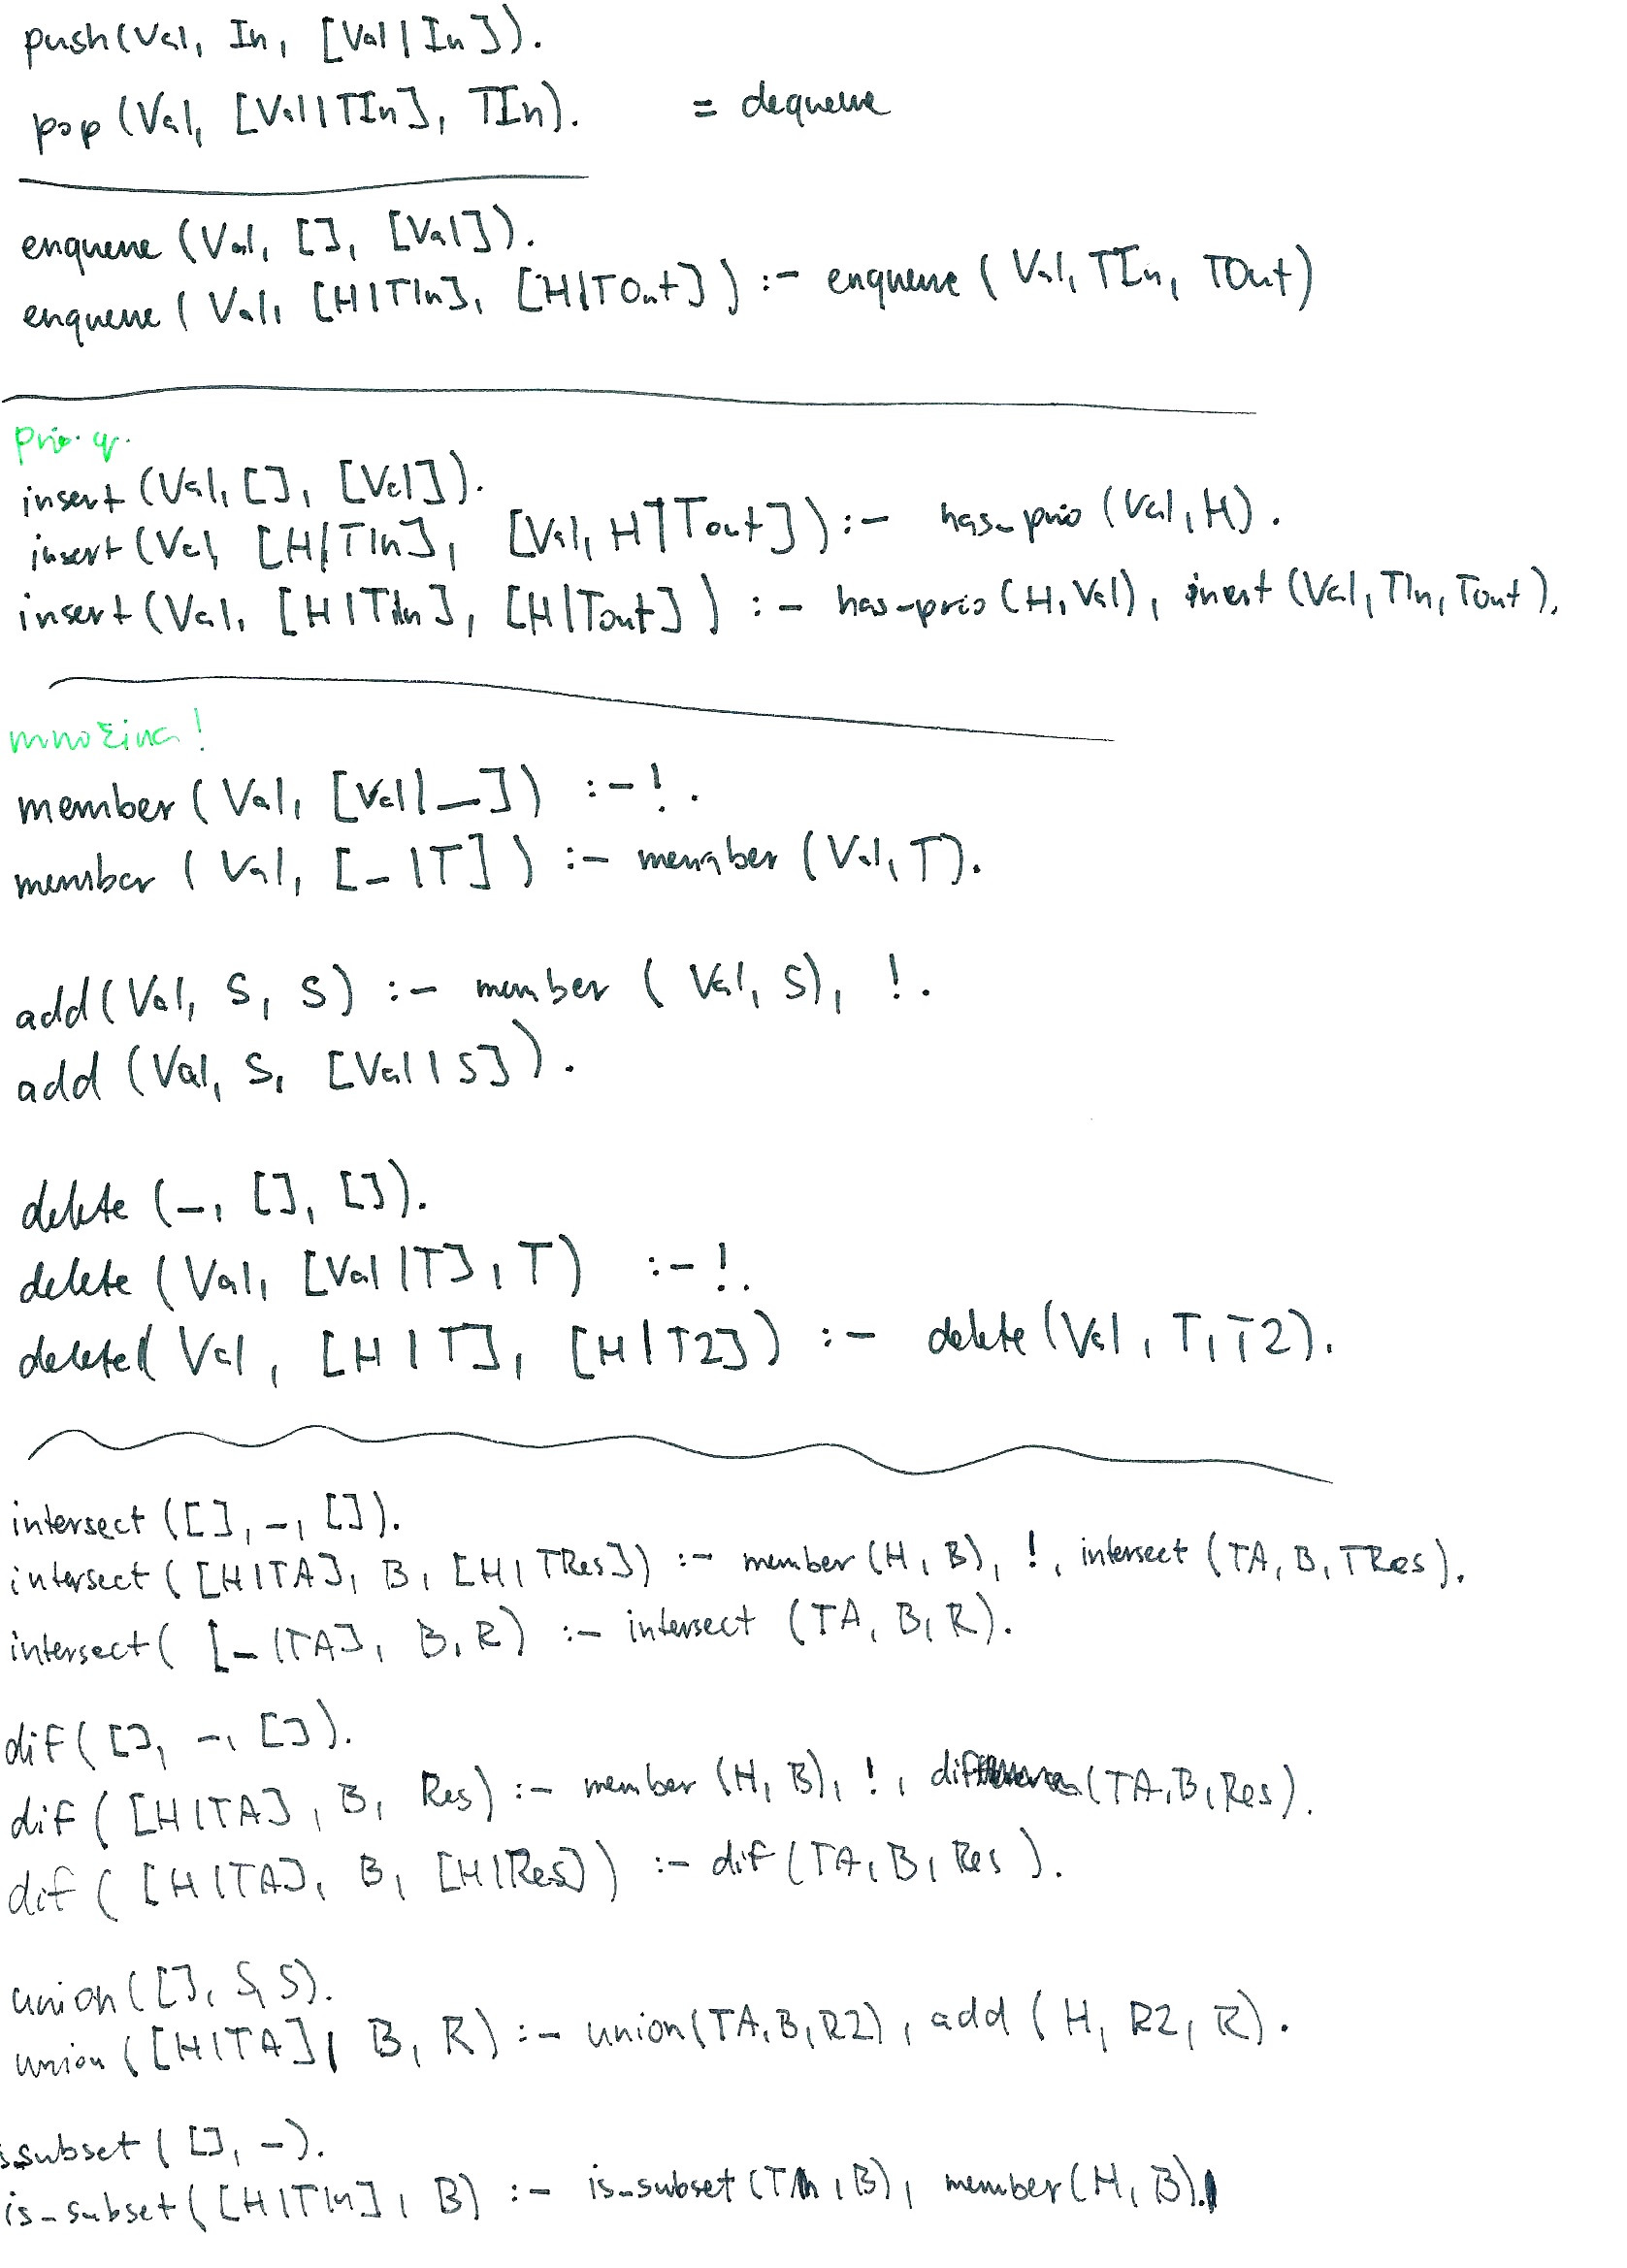 push(Val, In, [Val|In]).
pop(Val, [Val|TIn], TIn). = dequeue
enqueue(Val, [], [Val]).
enqueue(Val, [H|TIn], [H|TOut]) :- enqueue(Val, TIn, TOut)
prio. q.
insert(Val, [], [Val]).
insert(Val, [H|TIn], [Val, H|Tout]) :- has_prio(Val, H).
insert(Val, [H|TIn], [H|Tout]) :- has_prio(H, Val), inert(Val, TIn, Tout).
množina!
member(Val, [Val|_]) :- !.
member(Val, [_|T]) :- member(Val, T).
add(Val, S, S) :- member(Val, S), !.
add(Val, S, [Val|S]).
delete(_, [], []).
delete(Val, [Val|T], T) :- !.
delete(Val, [H|T], [H|T2]) :- delete(Val, T, T2).
intersect([], _, []).
intersect([H|TA], B, [H|TRes]) :- member(H, B), !, intersect(TA, B, TRes).
intersect([_|TA], B, R) :- intersect(TA, B, R).
dif([], _, []).
dif([H|TA], B, Res) :- member(H, B), !, dif(TA, B, Res).
dif([H|TA], B, [H|Res]) :- dif(TA, B, Res).
union([], S, S).
union([H|TA], B, R) :- union(TA, B, R2), add(H, R2, R).
ssubset([], _).
is_subset([H|TIn], B) :- is_subset(TIn, B), member(H, B).